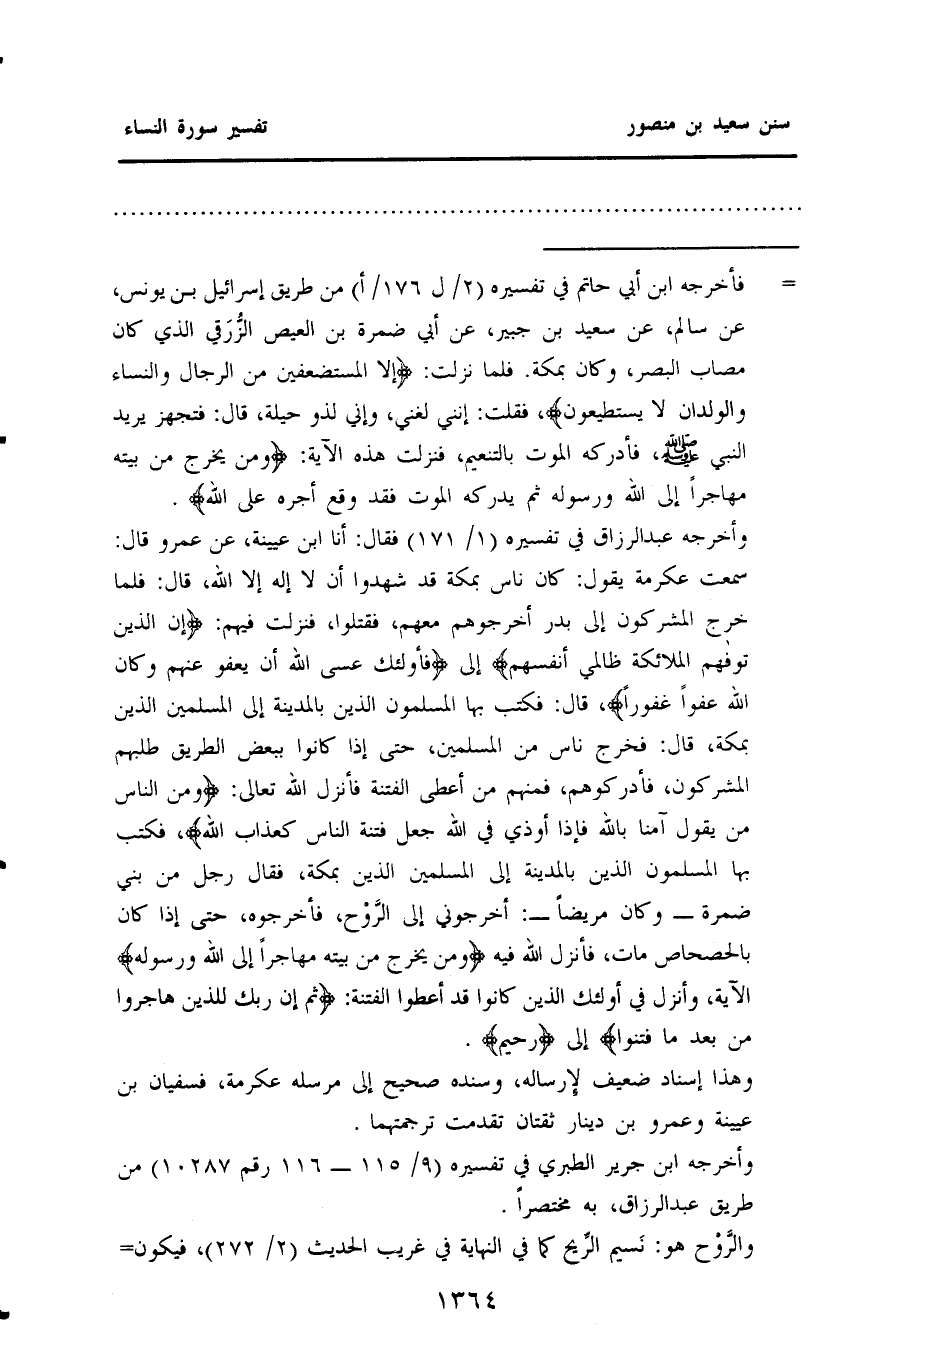 سنن سعيد بن منصور تفسير سورة النساء
................................................................................
= فأخرجه ابن أبي حاتم في تفسيره (٢/ ل ١٧٦/ أ) من طريق إسرائيل بن يونس،
عن سالم، عن سعيد بن جبير، عن أبي ضمرة بن العيص الزُّرَقي الذي كان
مصاب البصر، وكان بمكة. فلما نزلت: ﴿إلا المستضعفين من الرجال والنساء
والولدان لا يستطيعون﴾، فقلت: إنني لغني، وإني لذو حيلة، قال: فتجهز يريد
النبي ﷺ، فأدركه الموت بالتنعيم، فنزلت هذه الآية: ﴿ومن يخرج من بيته
مهاجراً إلى الله ورسوله ثم يدركه الموت فقد وقع أجره على الله﴾ .
وأخرجه عبدالرزاق في تفسيره (١/ ١٧١) فقال: أنا ابن عيينة، عن عمرو قال:
سمعت عكرمة يقول: كان ناس بمكة قد شهدوا أن لا إله إلا الله، قال: فلما
خرج المشركون إلى بدر أخرجوهم معهم، فقتلوا، فنزلت فيهم: ﴿إن الذين
توفّهم الملائكة ظالمي أنفسهم﴾ إلى ﴿فأولئك عسى الله أن يعفو عنهم وكان
الله عفواً غفوراً﴾، قال: فكتب بها المسلمون الذين بالمدينة إلى المسلمين الذين
بمكة، قال: فخرج ناس من المسلمين، حتى إذا كانوا ببعض الطريق طلبهم
المشركون، فأدركوهم، فمنهم من أعطى الفتنة فأنزل الله تعالى: ﴿ومن الناس
من يقول آمنا بالله فإذا أوذي في الله جعل فتنة الناس كعذاب الله﴾، فكتب
بها المسلمون الذين بالمدينة إلى المسلمين الذين بمكة، فقال رجل من بني
ضمرة ــ وكان مريضاً ــ: أخرجوني إلى الرَّوْح، فأخرجوه، حتى إذا كان
بالحصحاص مات، فأنزل الله فيه ﴿ومن يخرج من بيته مهاجراً إلى الله ورسوله﴾
الآية، وأنزل في أولئك الذين كانوا قد أعطوا الفتنة: ﴿ثم إن ربك للذين هاجروا
من بعد ما فتنوا﴾ إلى ﴿رحيم﴾ .
وهذا إسناد ضعيف لإرساله، وسنده صحيح إلى مرسله عكرمة، فسفيان بن
عيينة وعمرو بن دينار ثقتان تقدمت ترجمتهما .
وأخرجه ابن جرير الطبري في تفسيره (٩/ ١١٥ ــ ١١٦ رقم ١٠٢٨٧) من
طريق عبدالرزاق، به مختصراً .
والرَّوْح هو: نَسيم الرِّيح كما في النهاية في غريب الحديث (٢/ ٢٧٢)، فيكون=
١٣٦٤